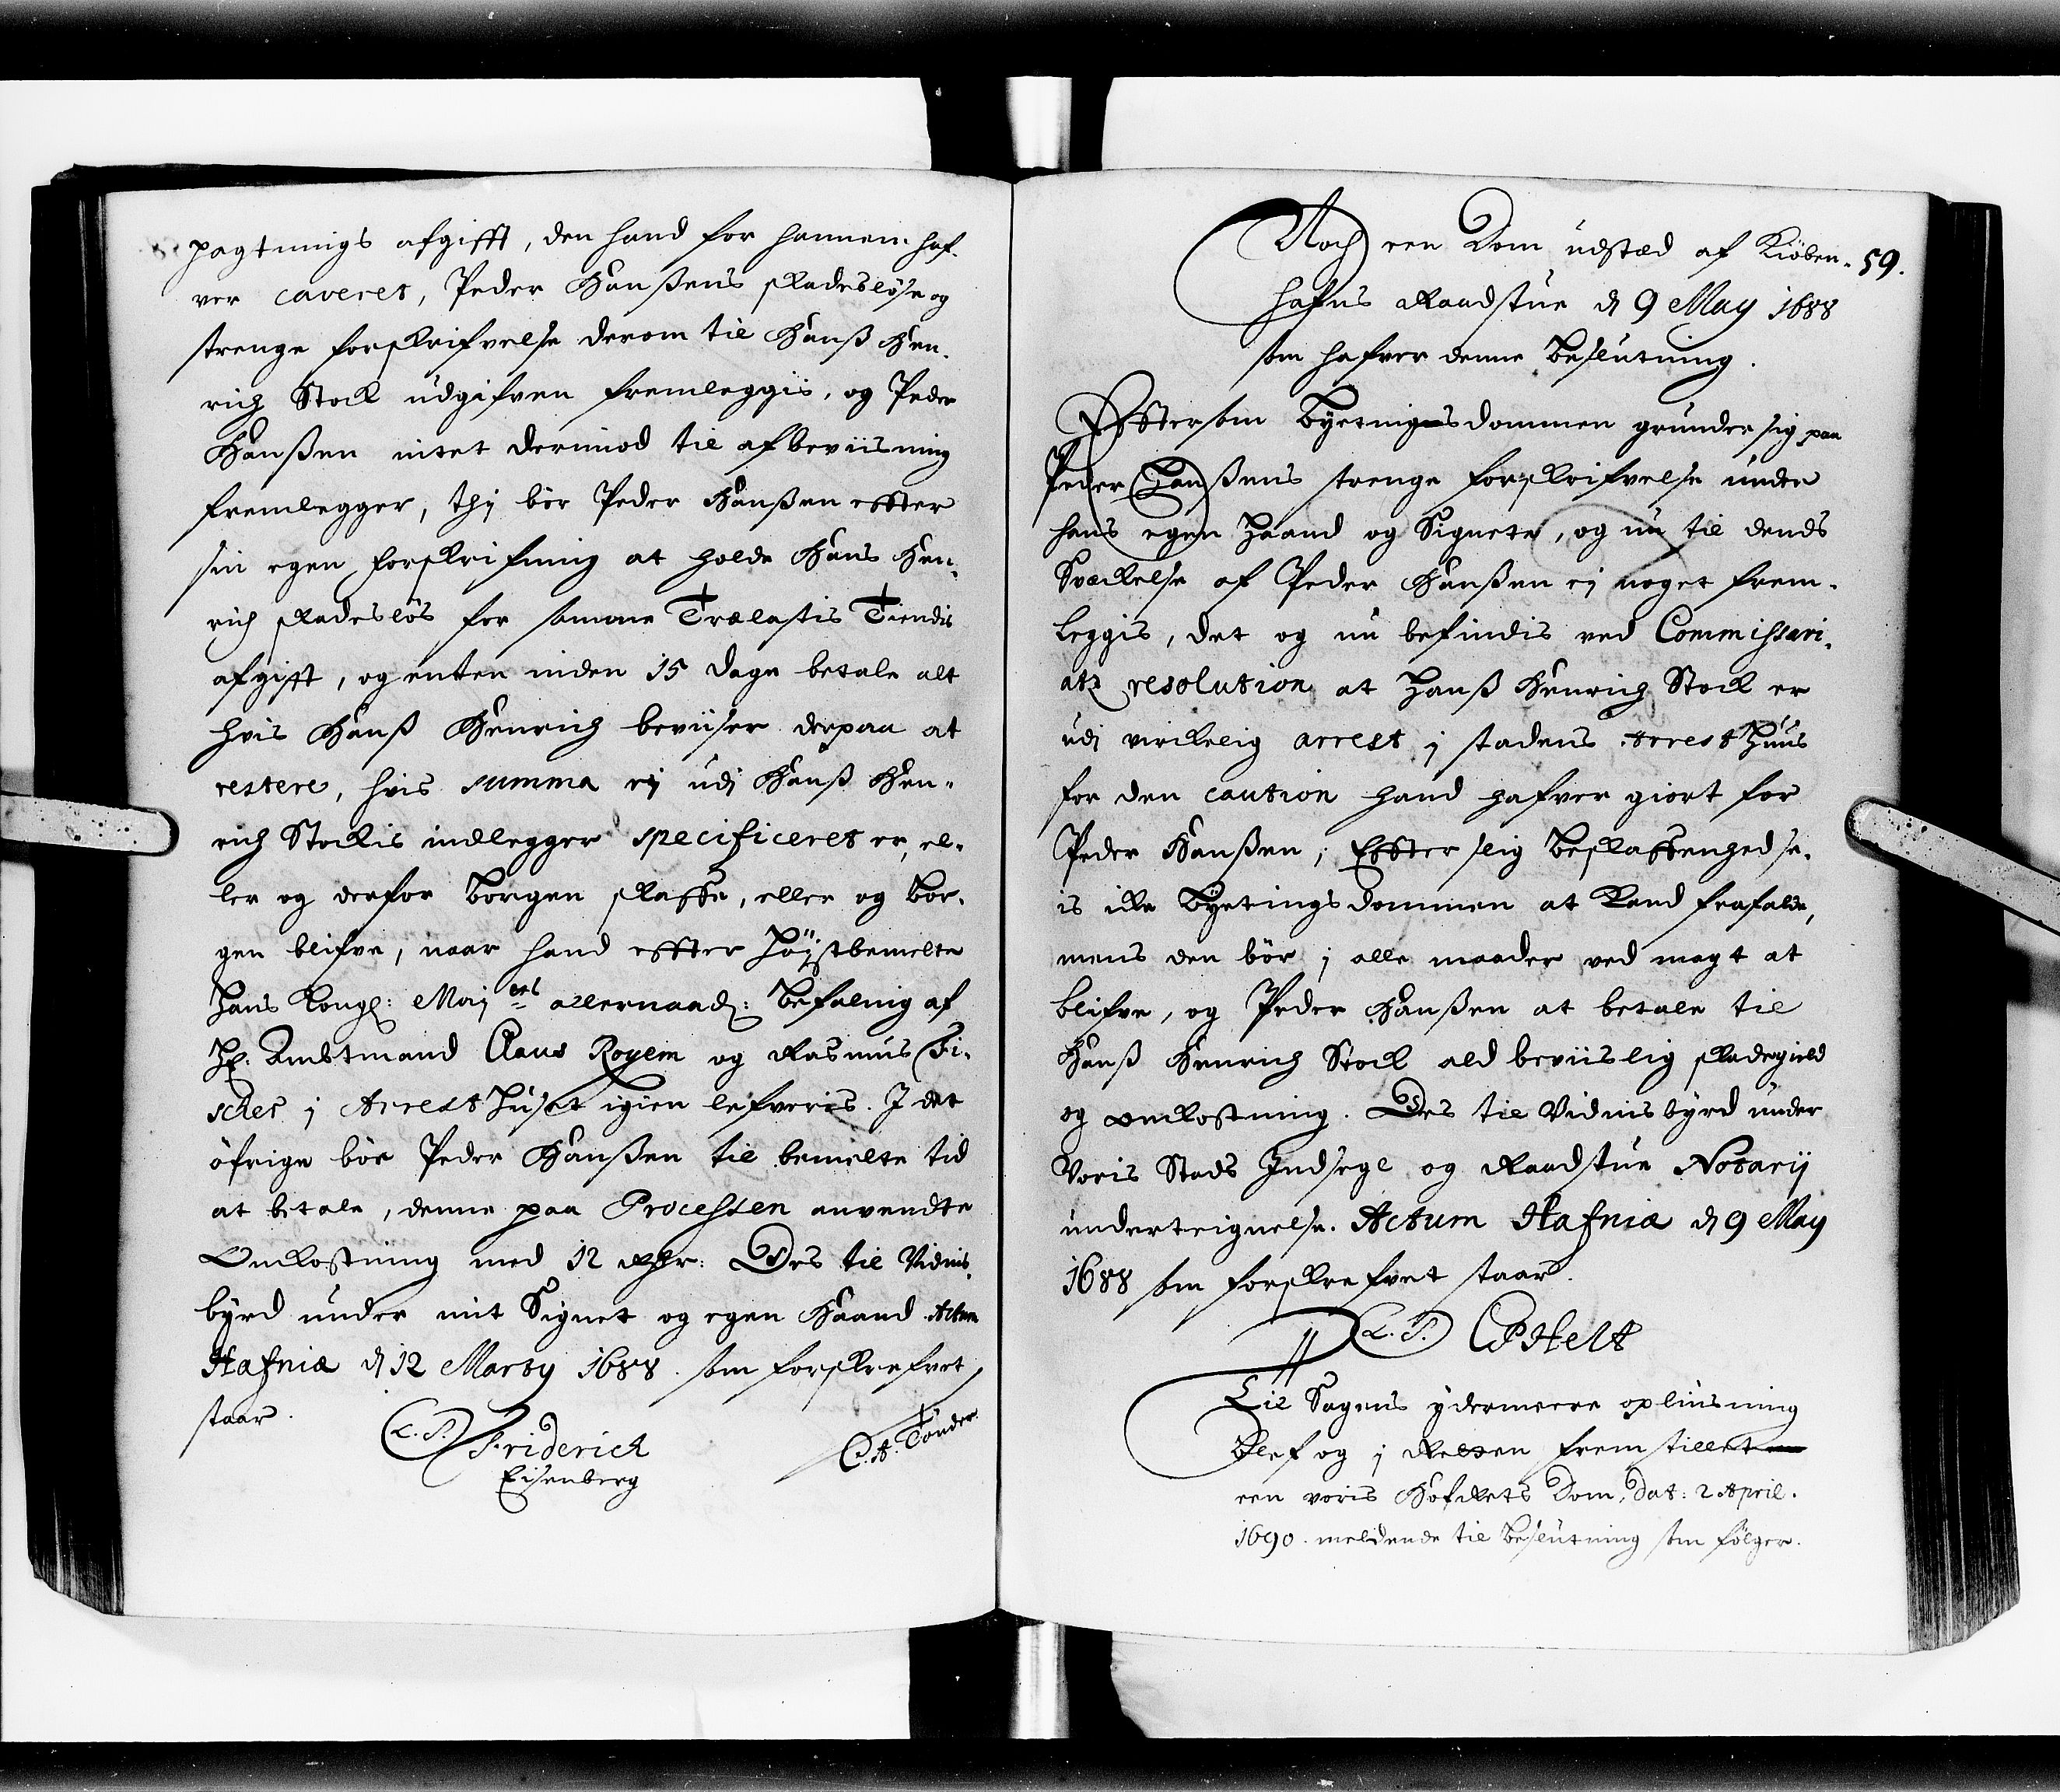 pagtnings afgifft, den hand for hannem haf-
ver caveret, Peder Hanßens skadesløse og
strenge forskrifvelse derom til Hanß Hen-
rich Stock udgifven fremleggis, og Peder
Hanßen intet derimod til afbeviisning
fremlegger, thj bør Peder Hanßen effter
sin egen forskrifning at holde Hans Hen-
rich skadesløs for samme Trælastis Tiendis
afgifft, og enten inden 15 dage betale alt
hvis Hanß Henrich beviiser derpaa at
restere, hvis summa ej udj Hanß Hen-
rich Stockis indlegger specificeret er, el-
ler og derfor borgen skaffe, eller og bor-
gen blifve, naar hand effter Høystbemelte
Hans Kongl: Maj: ets allernaad: befalnig af
Hr. Ambtmand Claus Røyem og Rasmus Fi-
scher j Arrest Huset igien lefveris. I det
øfrige bør Peder Hanßen til bemelte tid
at betale, denne paa Processen anvendte
Omkostning med 12 Rdlr: Des til Vidnis-
byrd under mit Signet og egen Haand Actum
Hafniæ d 12 Marty 1688. som forskrefvet
staar.
L. S. Friderich
Eisenberg
C. A. Tønder.
Noch een Dom udstæd af Kiøben-
59.
hafns Raadstue d 9 May 1688
som hafver denne Beslutning.
Efftersom Byetingsdommen grunder sig paa
Peder Hanßens strenge forskrifvelse under
hans egen Haand og Signete, og nu til dends
Svækelse af Peder Hanßen ej noget frem-
leggis, det og nu befindis ved Commissari-
atz resolution at Hanß Henrich Stock er
udj virckelig arrest j stadens Arrest Huus
for den caution hand hafver giort for
Peder Hanßen; Effter slig Beskaffenhed se-
is icke Byetings dommen at Kand frafalde,
mens den bør j alle maader ved magt at
blifve, og Peder Hanßen at betale til
Hanß Henrich Stock ald beviislig skadegield
og omkostning. Des til Vidnisbyrd under
Voris Stads Indsegl og Raadstue Notarij
underteignelse. Actum Hafniæ d 9 May
1688 som forskrefvet staar.
L. S. CP Helt
Til Sagens ydermeere opliusning
Blef og j Retten fremstillet
een voris HofRets Dom, Dat: 2 April.
1690. meldende til Beslutning som følger.